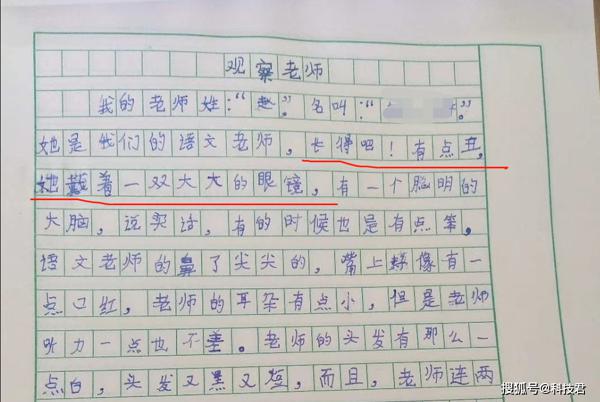 观察老师
我的老师姓:“赵”。名叫:“
她是我们的语文老师,长得吧!有点丑,
她戴着一双大大的眼镜,有一个脑明的
大脑,说实话,有的时候也是有点笨。
语文老师的鼻了尖尖的,嘴上好像有一
点口红,老师的耳朵有点小,但是老师
听力一点也不差。老师的头发有那么一
点白,头发又黑又短,而且,老师连两
搜狐号@科技君